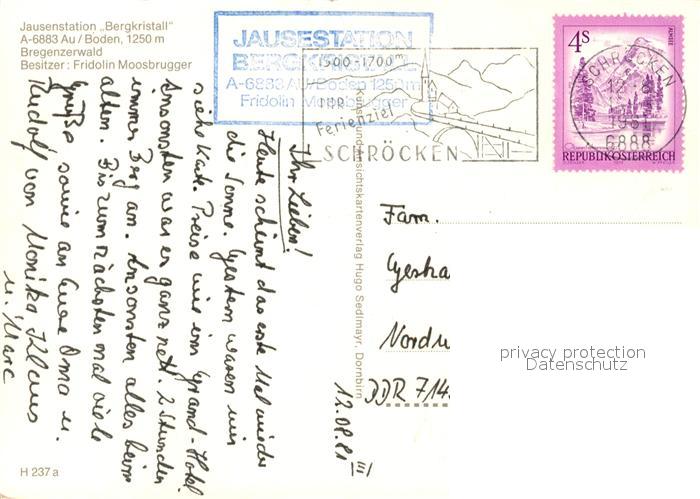 Jausenstation „Bergkristall"
A-6883 Au / Boden, 1250 m
Bregenzerwald
Besitzer: Fridolin Moosbrugger
JAUSESTATION
BERGKRISTALL
A-6883 AU/Boden 1250m
Fridolin Moosbrugger
1500-1700m
IHR
Ferienziel
SCHRÖCKEN
4S
SCHRÖCKEN
6888
REPUBLIK ÖSTERREICH
Ihr Lieben!
Heute scheint das erste Mal wieder
die Sonne. Gestern waren wir
siehe Karte. Preise wie im Grand-Hotel
Ansonsten war es ganz nett. 2 Stunden
immer Berg an. Ansonsten alles beim
alten. Bis zum nächsten mal viele
Grüße sowie an Eure Oma u.
Rudolf von Monika Klaus
u. Marc
12.08.81
Ansichtskartenverlag Hugo Sedlmayr, Dornbirn
Fam.
Gerha
Nordu
DDR 714
privacy protection
Datenschutz
H 237 a